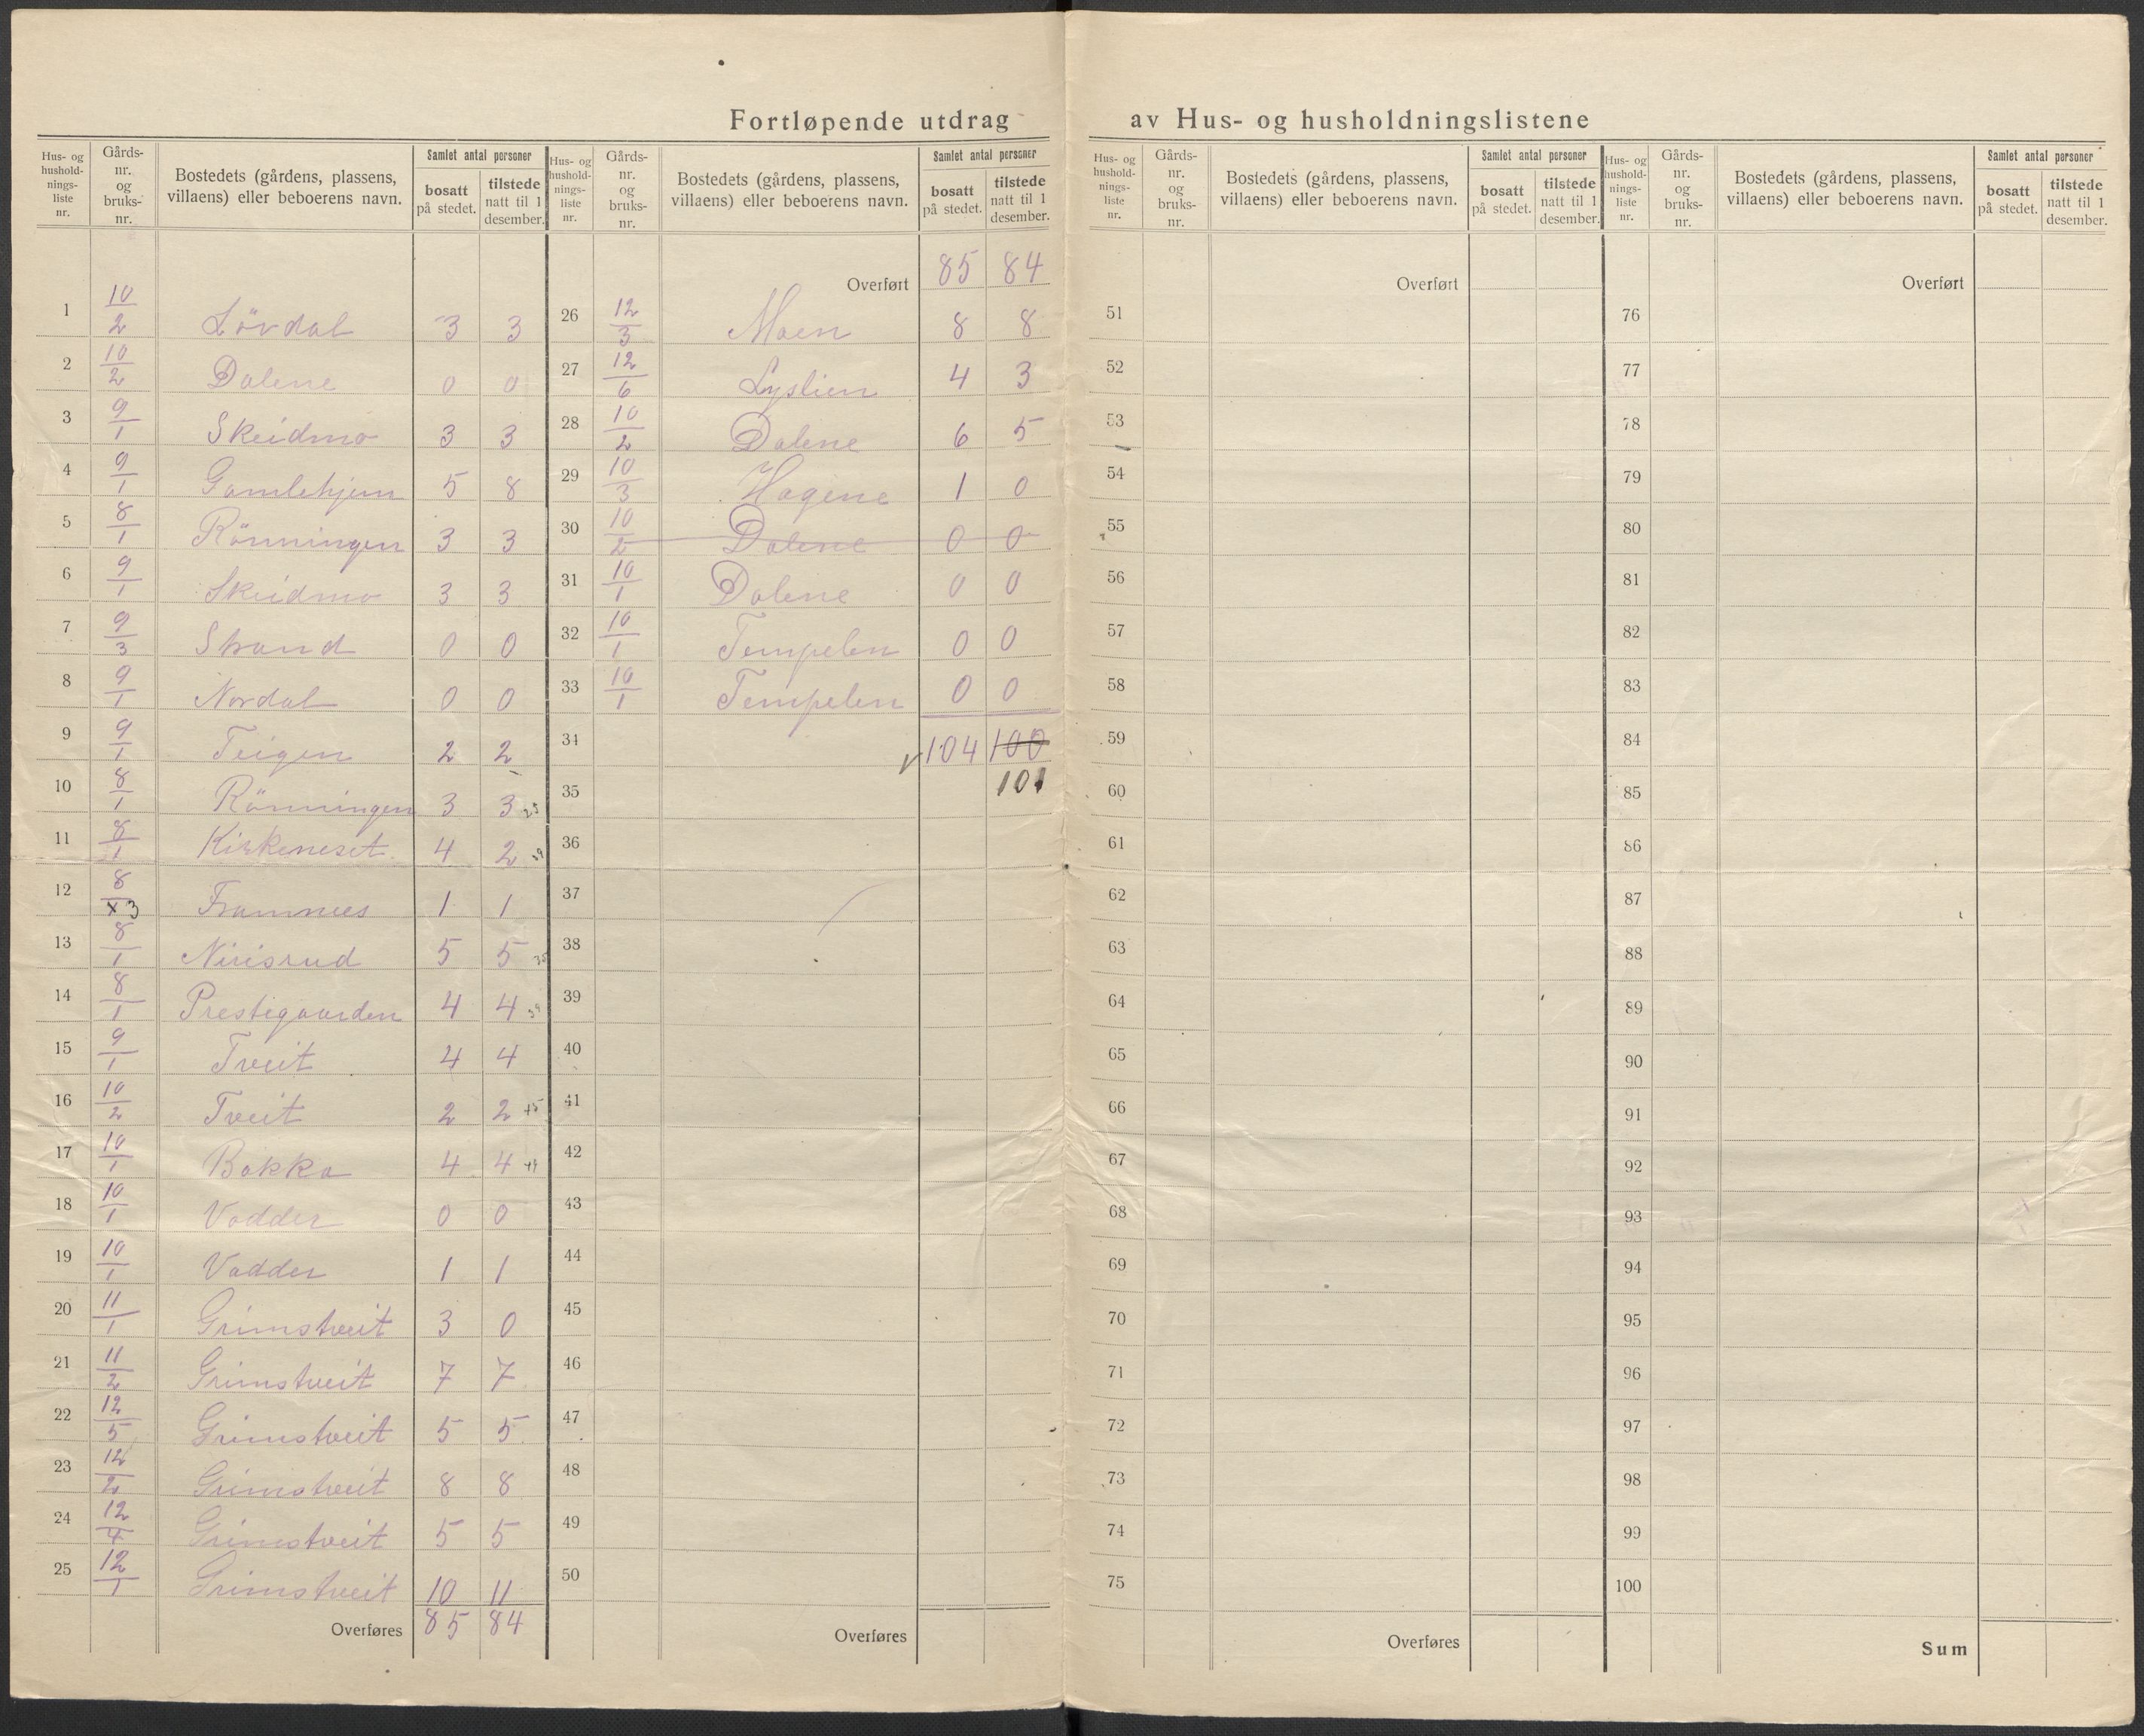 Fortløpende utdrag av Hus- og husholdningslistene
Hus- og hushold- nings- liste nr. | Gårds- nr. og bruks- nr. | Bostedets (gårdens, plassens, villaens) eller beboerens navn. | Samlet antal personer | bosatt på stedet. | tilstede natt til 1 desember.
1 10/2 Lövdal 3 3
2 10/2 Dalene 0 0
3 9/1 Skeidmo 3 3
4 9/1 Gamlehjem 5 8
5 8/1 Rönningen 3 3
6 9/1 Skeidmo 3 3
7 9/3 Strand 0 0
8 9/1 Nordal 0 0
9 9/1 Teigen 2 2
10 8/1 Rönningen 3 3
11 8/1 Kirkeneset 4 2
12 8/x3 Framnes 1 1
13 8/1 Nirisrud 5 5
14 8/1 Prestigaarden 4 4
15 9/1 Tveit 4 4
16 10/2 Tveit 2 2
17 10/1 Bakka 4 4
18 10/1 Vadder 0 0
19 10/1 Vadder 1 1
20 11/1 Grimstveit 3 0
21 11/2 Grimstveit 7 7
22 12/5 Grimstveit 5 5
23 12/2 Grimstveit 8 8
24 12/4 Grimstveit 5 5
25 12/1 Grimstveit 10 11
Overføres 85 84
Hus- og hushold- nings- liste nr. | Gårds- nr. og bruks- nr. | Bostedets (gårdens, plassens, villaens) eller beboerens navn. | Samlet antal personer | bosatt på stedet. | tilstede natt til 1 desember.
Overført 85 84
26 12/3 Moen 8 8
27 12/6 Lyslien 4 3
28 10/2 Dalene 6 5
29 10/3 Hagene 1 0
30 10/2 Dalene 0 0
31 10/1 Dalene 0 0
32 10/1 Tempelen 0 0
33 10/1 Tempelen 0 0
34 104 100
35 101
36
37
38
39
40
41
42
43
44
45
46
47
48
49
50
Overføres
Hus- og hushold- nings- liste nr. | Gårds- nr. og bruks- nr. | Bostedets (gårdens, plassens, villaens) eller beboerens navn. | Samlet antal personer | bosatt på stedet. | tilstede natt til 1 desember.
Overført
51
52
53
54
55
56
57
58
59
60
61
62
63
64
65
66
67
68
69
70
71
72
73
74
75
Overføres
Hus- og hushold- nings- liste nr. | Gårds- nr. og bruks- nr. | Bostedets (gårdens, plassens, villaens) eller beboerens navn. | Samlet antal personer | bosatt på stedet. | tilstede natt til 1 desember.
Overført
76
77
78
79
80
81
82
83
84
85
86
87
88
89
90
91
92
93
94
95
96
97
98
99
100
Sum